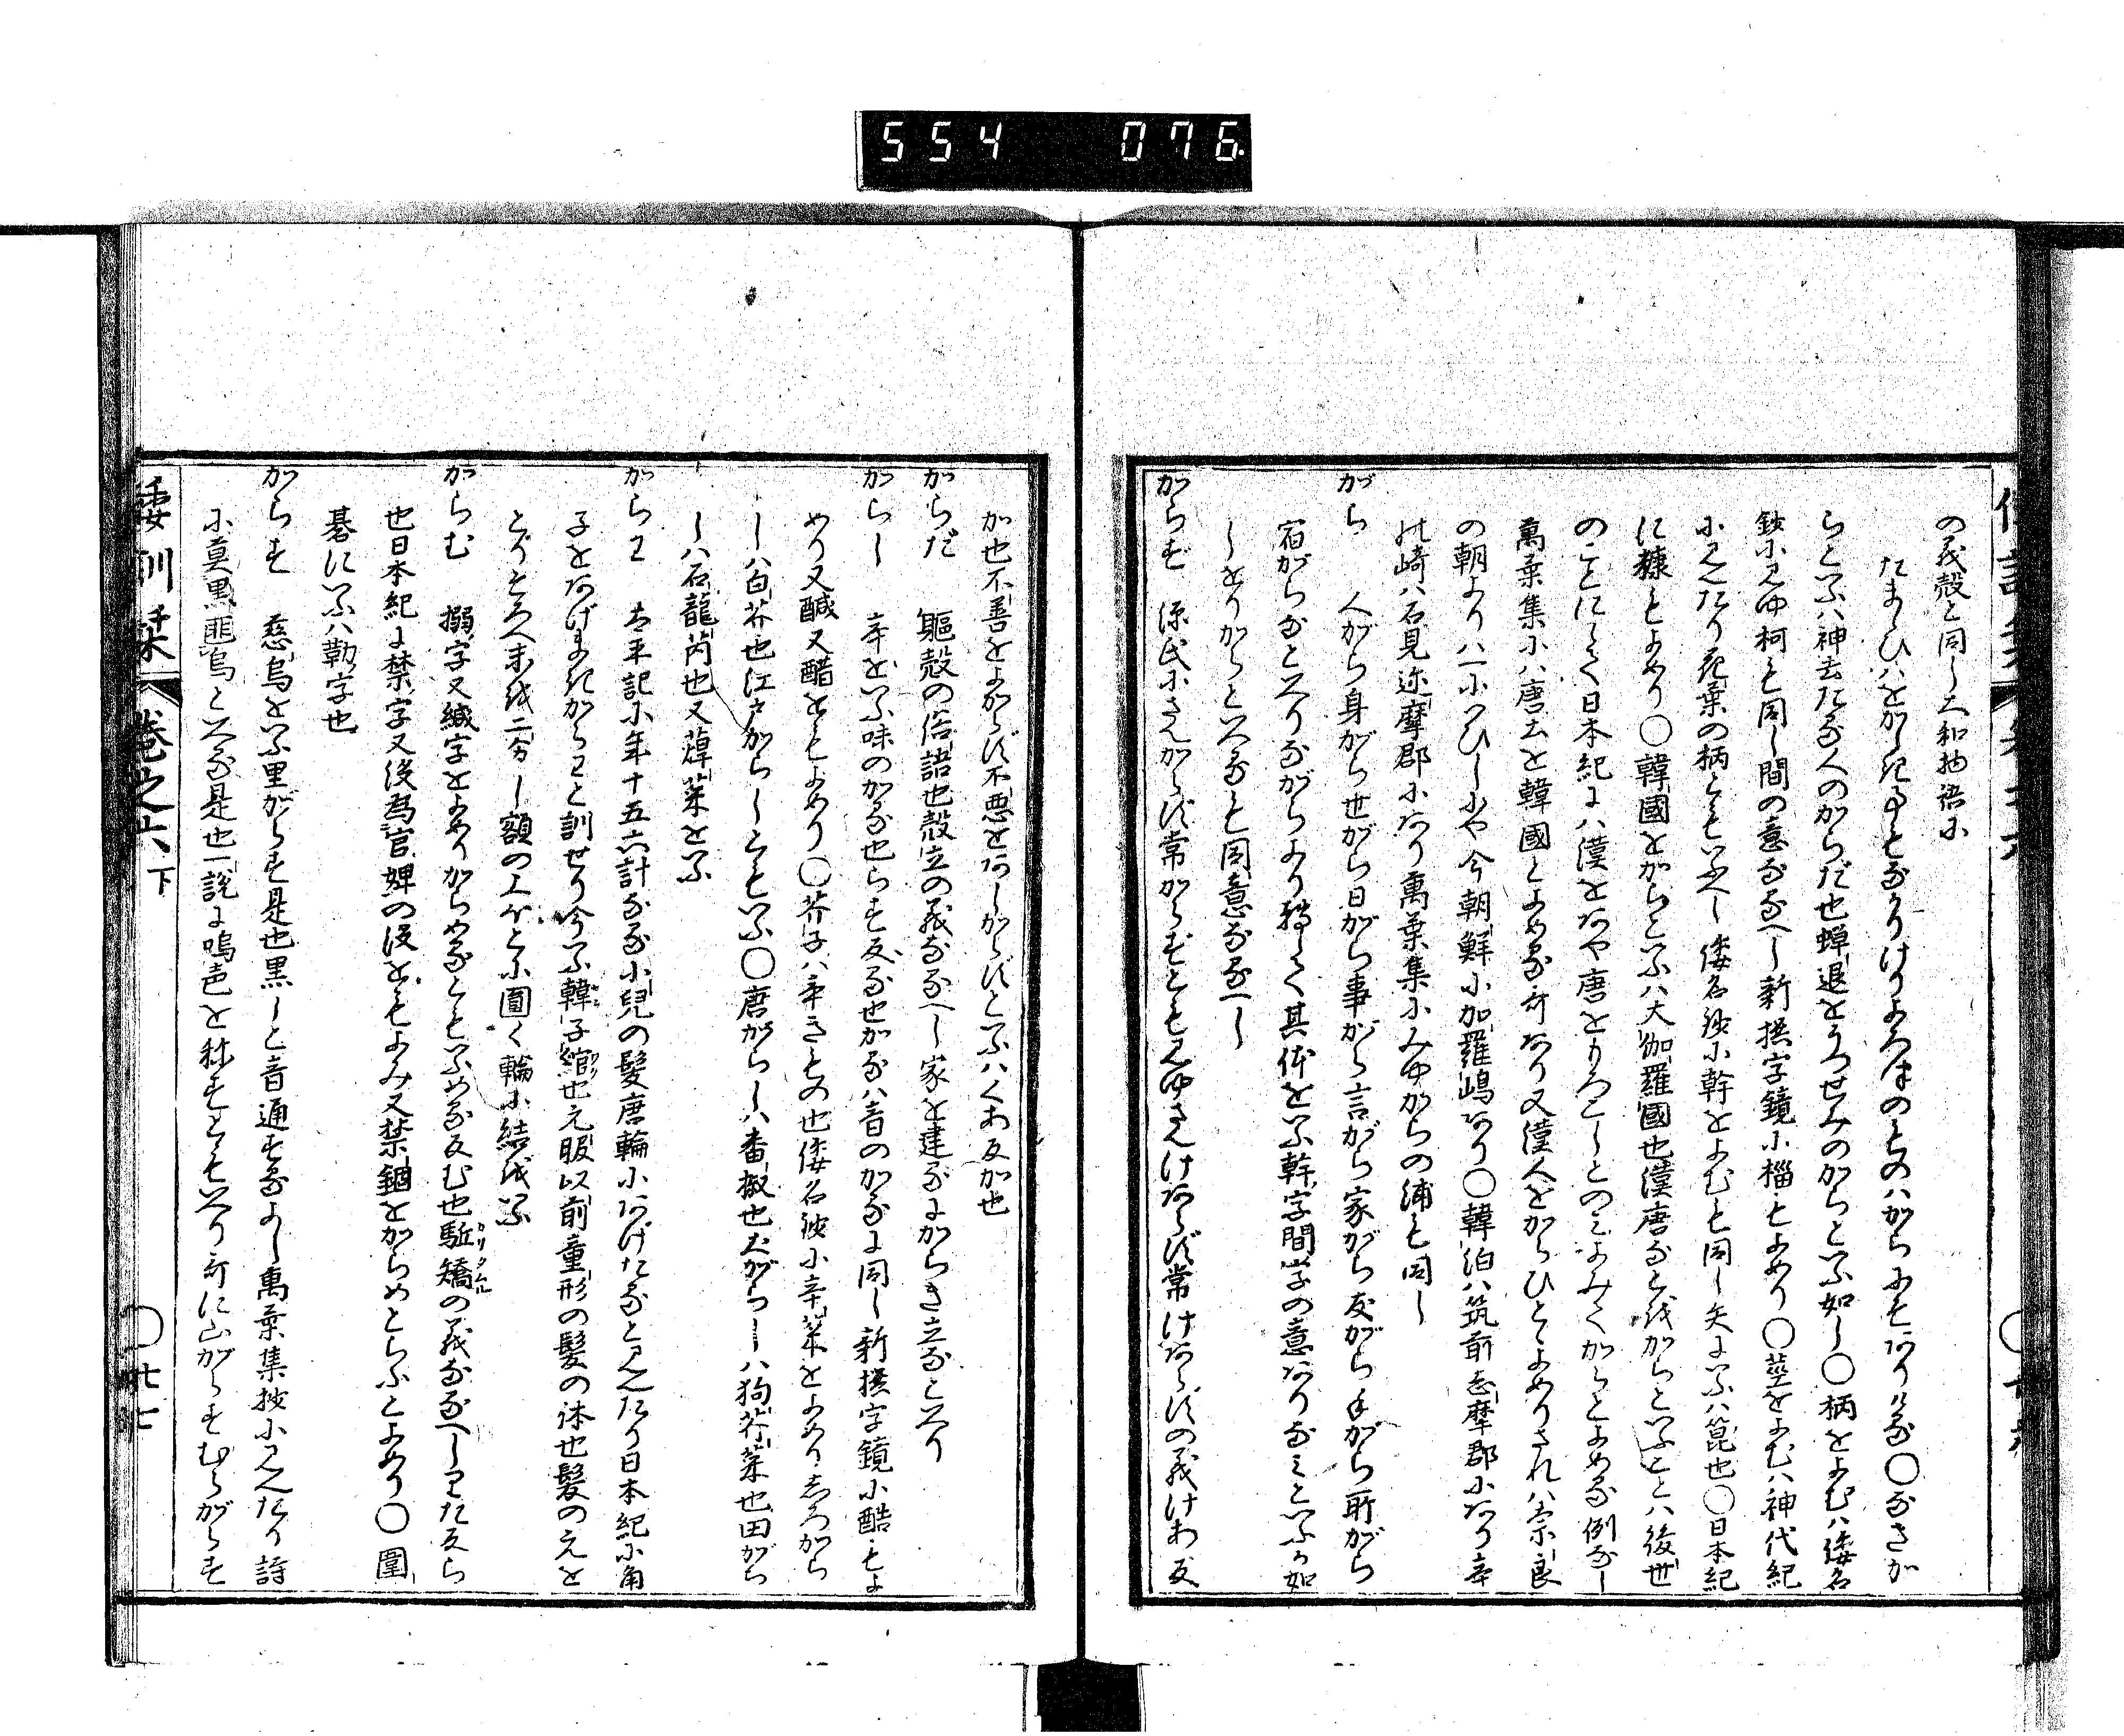 554 076
の義殻と同し大和物語に
たましひはをかしき事もなかりけりよろつのものはからにそありける○なきか
らといふは神去たる人のからだ也蝉退をうつせみのからといふ如し○柄をよむは倭名
鈔に見ゆ柯も同し間の意なるへし新撰字鏡に橊もよめり○莖をよむは神代紀
に見えたり花葉の柄ともいふへし倭名鈔に幹をよむも同し矢にいふは箆也○日本紀
に糠もよめり○韓國をからといふは大伽羅國也漢唐なとをからといふことは後世
のことにして日本紀には漢をあや唐をもろこしとのみよみてからとよめる例なし
萬葉集には唐土を韓國とよめる哥あり又漢人をからひとゝよめりされは奈良
の朝よりは一につひしにや今朝鮮に加羅嶋あり○韓泊は筑前志摩郡にあり辛
の崎は石見迩摩郡にあり萬葉集にみゆからの浦も同し
がら　人がら身がら世がら日がら事がら言がら家がら友がら手がら所がら
宿がらなといへりながらより轉して其体をいふ幹字間字の意ありなみといふか如
しをりからといへるも同意なるへし
からず　源氏にさえからず常からずとも見ゆさえけあらず常けあらずの義けあ反
か也不善をよからず不悪をあしからずといふはくあ反か也
からだ　軀殻の俗語也殻立の義なるへし家を建るにからき立るといへり
からし　辛をいふ味のかる也らす反る也かるは音のかるに同し新撰字鏡に酷もよ
めり又醎又醋をもよめり○芥子は辛きもの也倭名鈔に辛菜をよめりしろから
しは白芥也江戸からしともいふ○唐がらしは番椒也犬がらしは狗芥菜也田がら
しは石龍芮也又蔊菜をいふ
からわ　太平記に年十五六計なる小兒の髪唐輪にあげたると見えたり日本紀に角
子をあげまきからわと訓せり今いふ韓子綰也元服以前童形の髪の体也髪のもとを
とりそろへ末を二分し額の上ほとに圓く輪に結をいふ
からむ　搦字又緘字をよめりからめるともいふめる反む也駈矯の義なるへしりた反ら
也日本紀に禁字又役為官婢の役をもよみ又禁錮をからめとらふとよめり○圍
碁にいふは勒字也
からす　慈烏をいふ里がらす是也黒しと音通するよし萬葉集抄に見えたり詩
に莫黒匪烏といへる是也一説に鳴声を称すともいへり哥に山がらすむらがらす
倭訓栞　卷之六　下　○　廿七